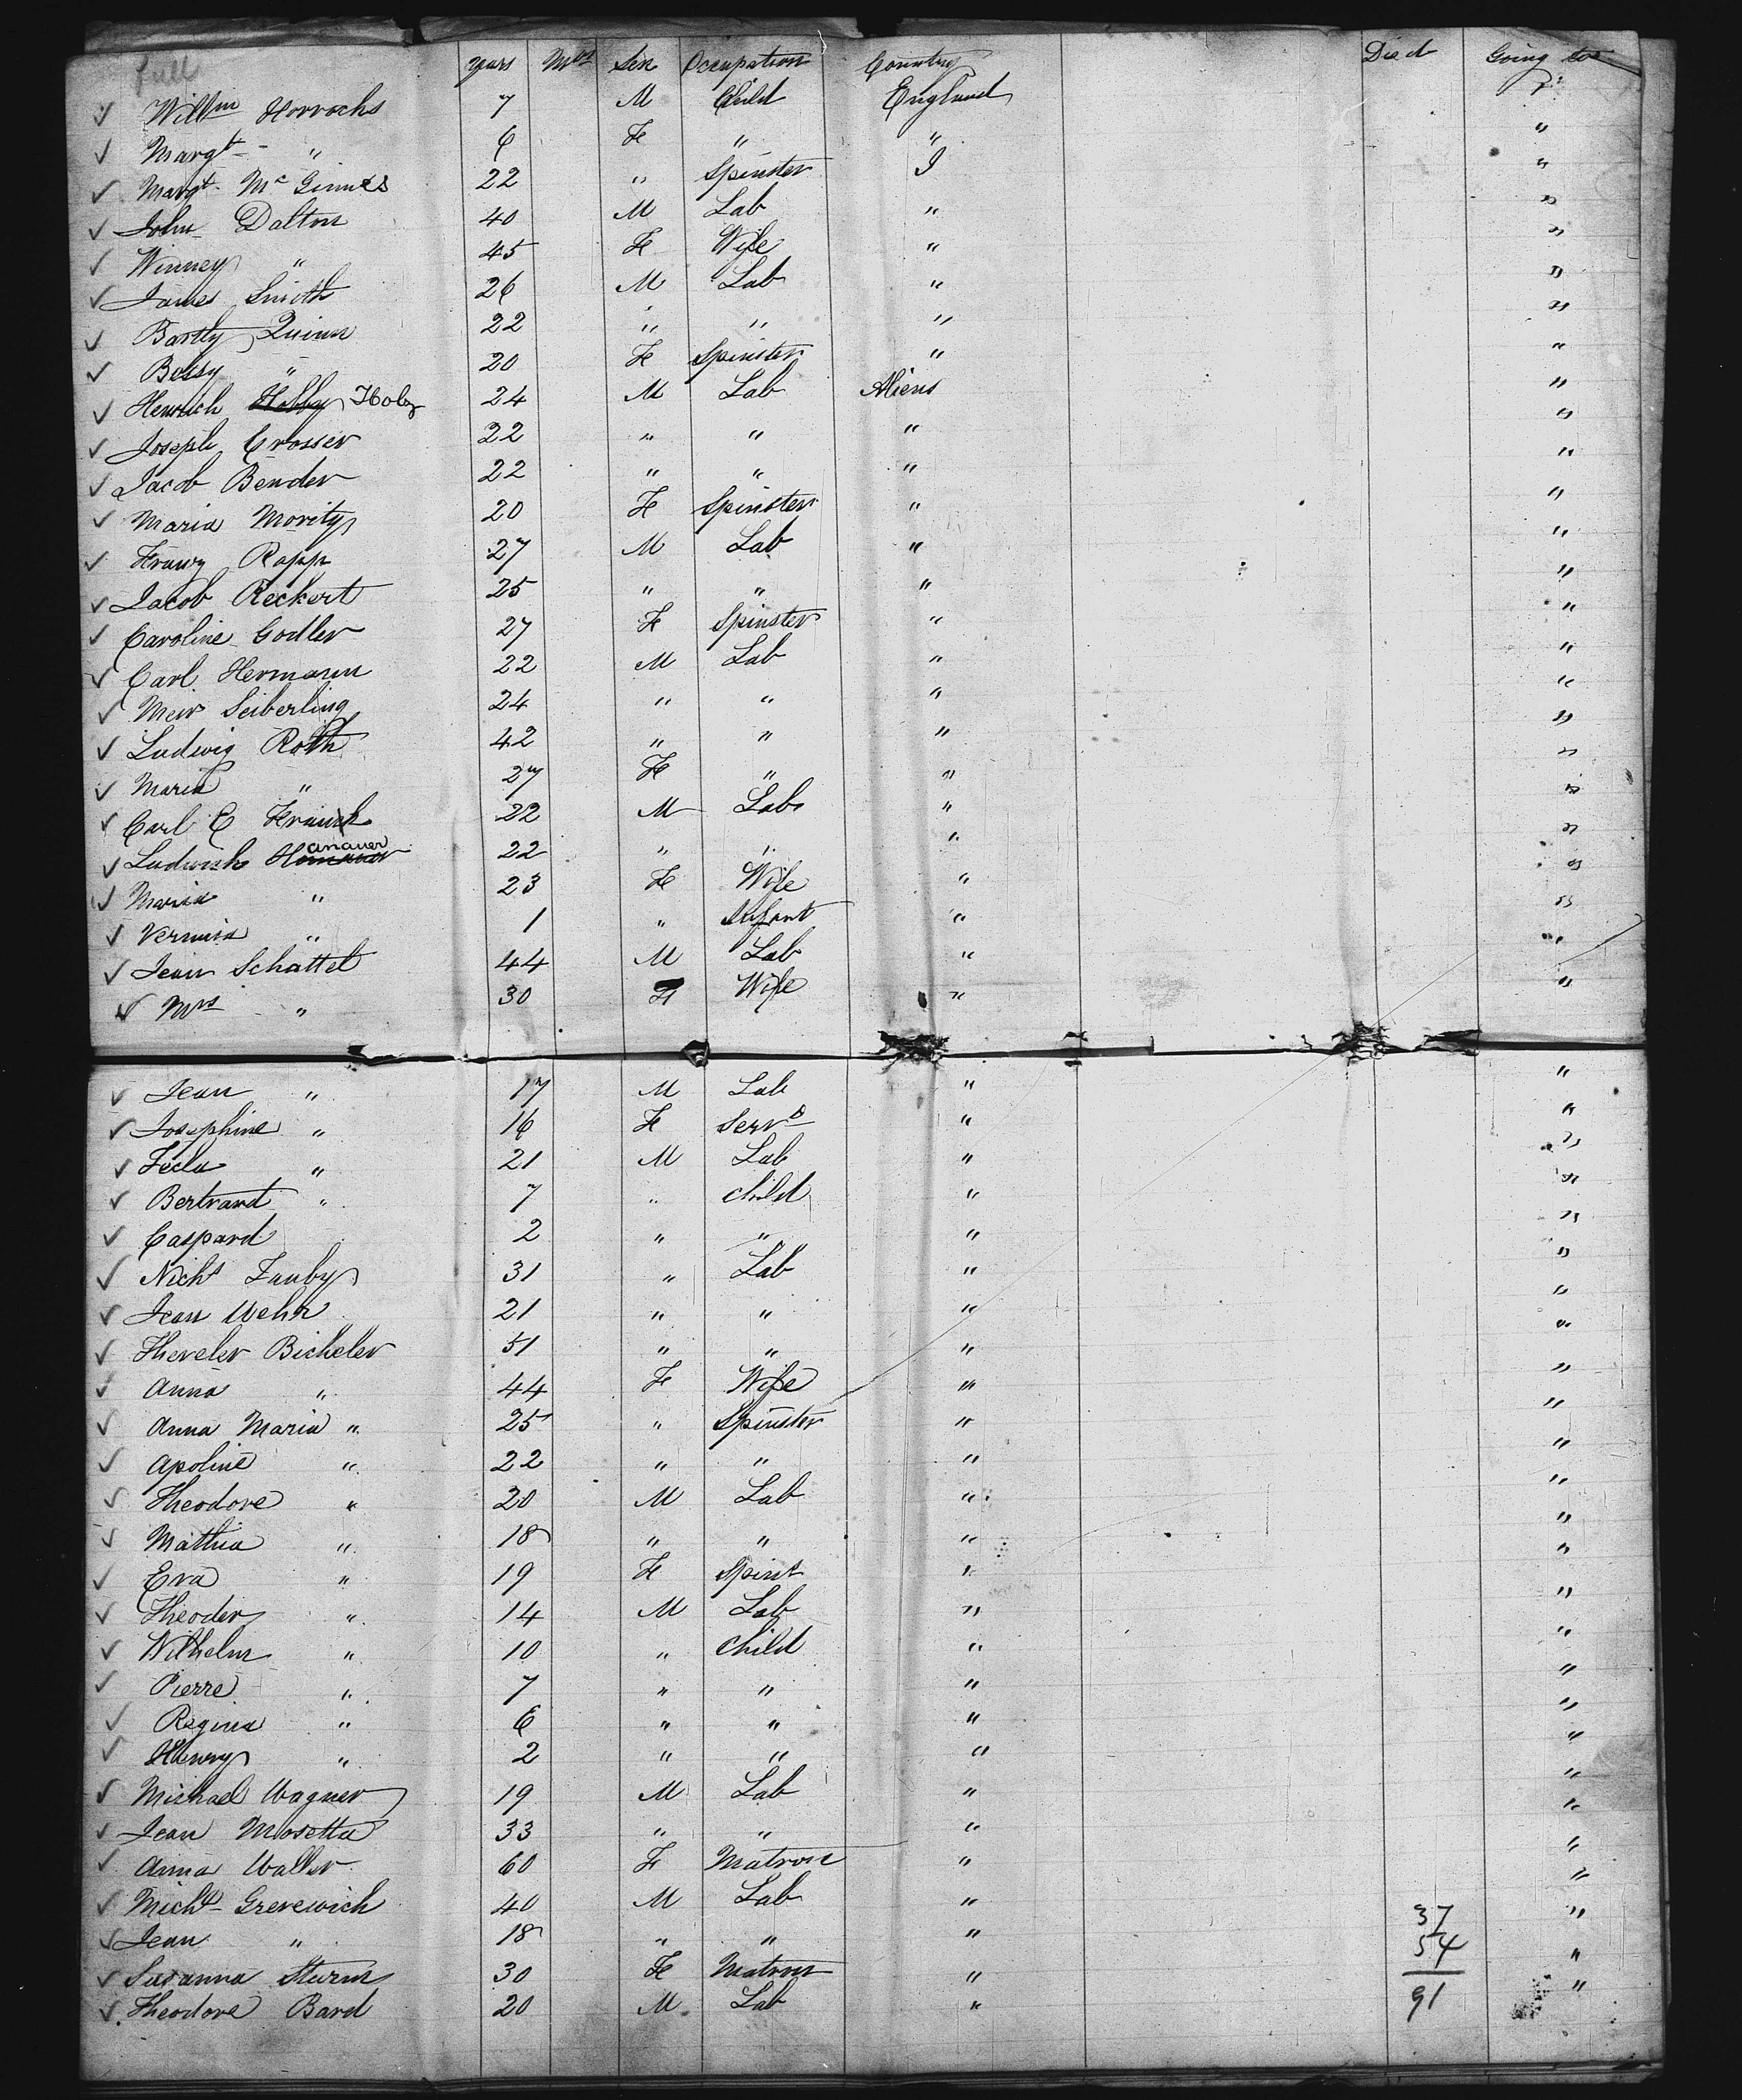 full
years Mos Sex Occupation Country Died Going to
✓ Willm Horrocks 7 M Child England "
✓ Margt " 6 Fe " " "
✓ Margt Mc Ginnes 22 " Spinster I "
✓ John Dalton 40 M Lab " "
✓ Winney " 45 Fe Wife " "
✓ James Smith 26 M Lab " "
✓ Bartly Quinn 22 " " " "
✓ Bessy " 20 Fe Spinster " "
✓ Henrich Holz 24 M Lab Aliens "
✓ Joseph Crosser 22 " " " "
✓ Jacob Bender 22 " " " "
✓ Maria Moritz 20 Fe Spinster " "
✓ Franz Rapp 27 M Lab " "
✓ Jacob Reckert 25 " " " "
✓ Caroline Godler 27 Fe Spinster " "
✓ Carl Hermann 22 M Lab " "
✓ Meir Seiberling 24 " " " "
✓ Ludwig Roth 42 " " " "
✓ Maria " 27 Fe " " "
✓ Carl E 22 M Lab " "
✓ Ludwich Hanauer 22 " " " "
✓ Maria " 23 Fe Wife " "
✓ " 1 " Infant " "
✓ Jean Schattel 44 M Lab " "
✓ Mrs " 30 Fe Wife " "
✓ Jean " 17 M Lab " "
✓ Josephine " 16 Fe Servt " "
✓ Fecla " 21 M Lab " "
✓ Bertrand " 7 " child " "
✓ Caspard 2 " " " "
✓ Nichs Zauby 31 " Lab " "
✓ Jean Wehr 21 " " " "
✓ Bicheler 51 " " " "
✓ Anna " 44 Fe Wife " "
✓ Anna Maria " 25 " Spinster " "
✓ Apoline " 22 " " " "
✓ Theodore " 20 M Lab " "
✓ Mathia " 18 " " " "
✓ Eva " 19 Fe Spinst " "
✓ Theoder " 14 M Lab " "
✓ Wilhelm " 10 " child " "
✓ Pierre " 7 " " " "
✓ Regina " 6 " " " "
✓ Henry " 2 " " " "
✓ Michael Wagner 19 M Lab " "
✓ Jean Mosetta 33 " " " "
✓ Anna Waller 60 Fe Matron " "
✓ Michl Grevewich 40 M Lab " "
✓ Jean " 18 " " " 37 "
✓ Susanna Sturm 30 Fe Matron " 54 "
✓ Theodore Bard 20 M Lab " 91 "